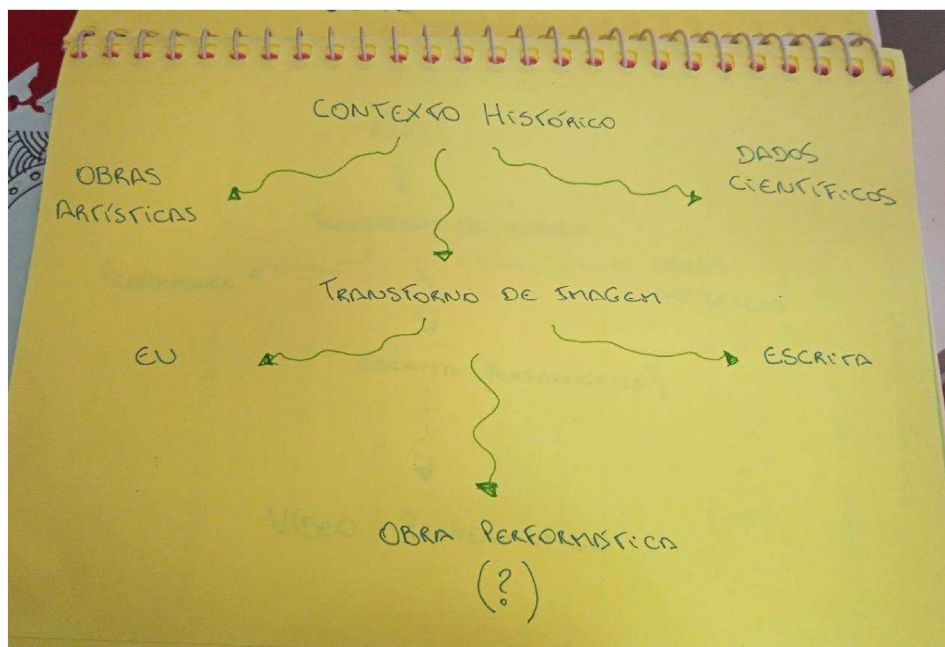 CONTEXTO HISTÓRICO
OBRAS
ARTÍSTICAS
DADOS
CIENTÍFICOS
TRANSTORNO DE IMAGEM
EU
ESCRITA
OBRA PERFORMÁTICA
(?)